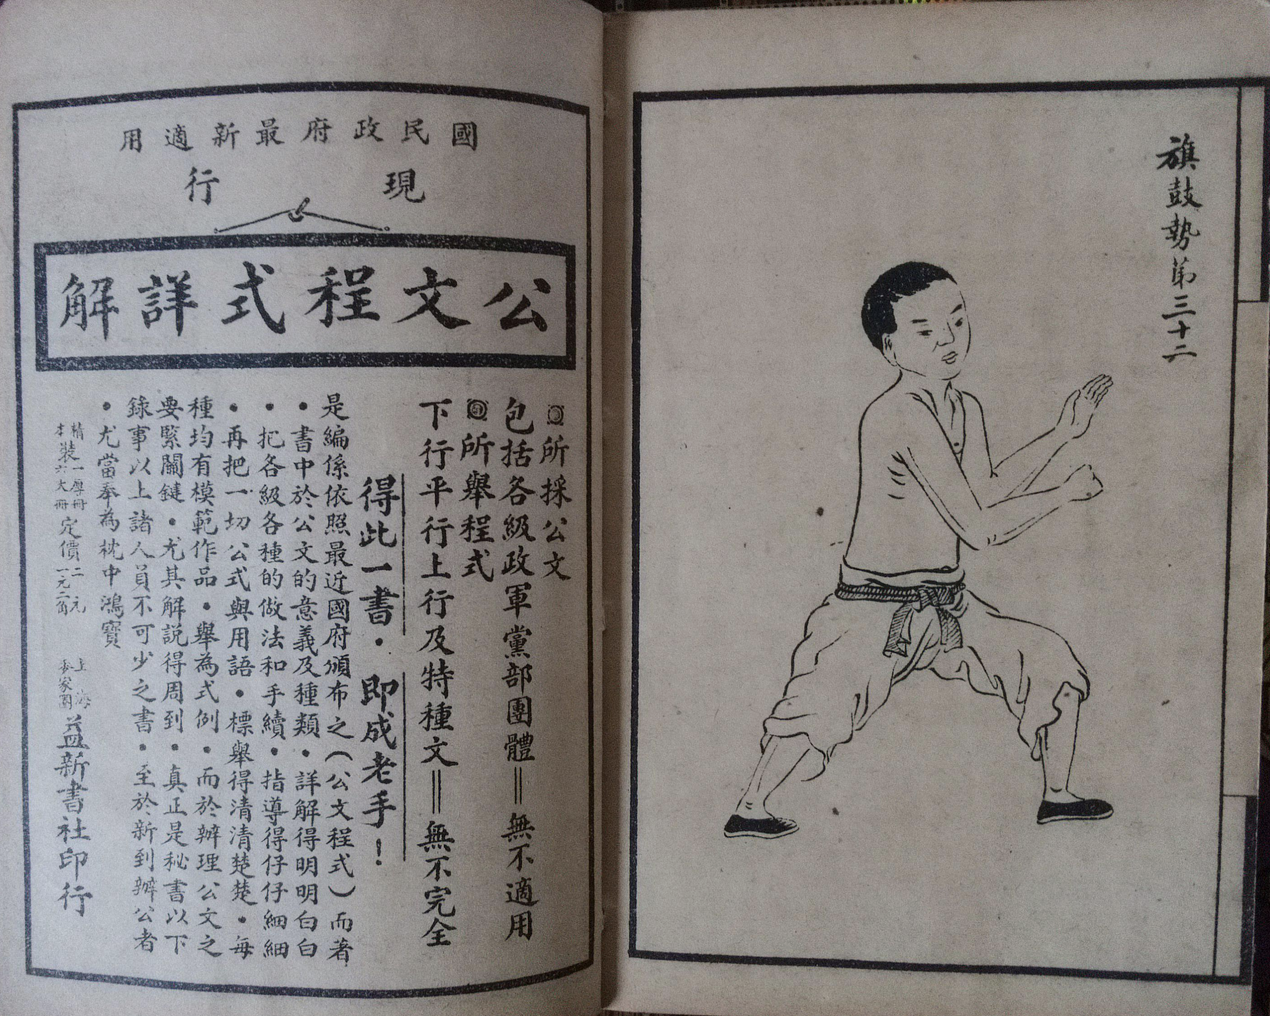 旗鼓勢第三十二
國民政府最新適用
現行
公文程式詳解
◎所採公文
包括各級政軍黨部團體＝無不適用
◎所舉程式
下行平行上行及特種文＝無不完全
得此一書・即成老手！
是編係依照最近國府頒布之（公文程式）而著
・書中於公文的意義及種類・詳解得明明白白
・把各級各種的做法和手續・指導得仔仔細細
・再把一切公式與用語・標舉得清清楚楚・每
種均有模範作品・舉為式例・而於辦理公文之
要緊關鍵・尤其解說得周到・真正是秘書以下
錄事以上諸人員不可少之書・至於新到辦公者
・尤當奉為枕中鴻寶
精裝一厚冊 定價二元
本裝六大冊 定價一元二角
上海
益新書社印行